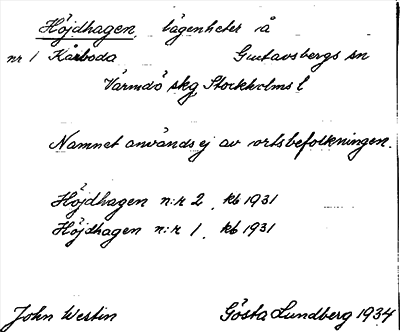 Höjdhagen, lägenheter å
nr 1 Kårboda Gustavsbergs sn
Värmdö skg Stockholms l
Namnet användes ej av ortsbefolkningen.
Höjdhagen n:r 2, kb 1931
Höjdhagen n:r 1, kb 1931
John Westin Gösta Lundberg 1934